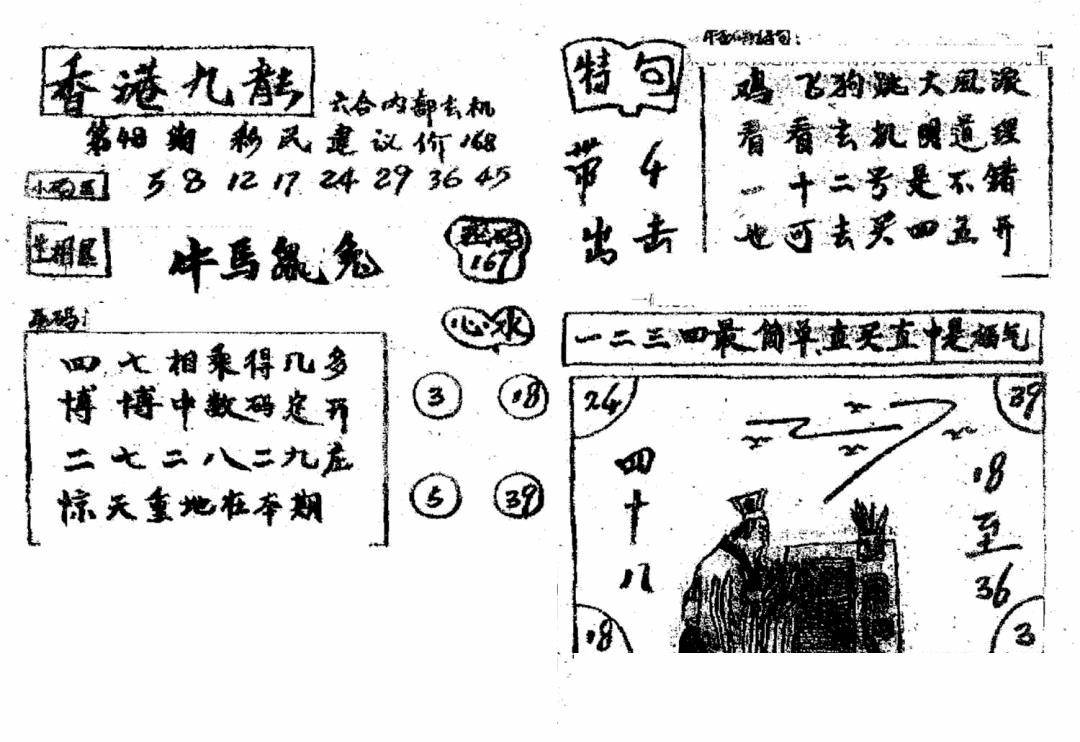 香港九龍
六合内部玄机
第48期 彩民建议价168
小码区 5 8 12 17 24 29 36 45
生相区
牛馬鼠兔
169
四七相乘得几多
博博中数码定开
二七二八二九庄
惊天重地在本期
心水
3 18
5 39
特句
带4
出击
鸡飞狗跳大風浪
看看玄机明道理
一十二号是不错
也可去买四五开
一二三四最简单直买直中是福气
24
39
四十八
18至36
18
3